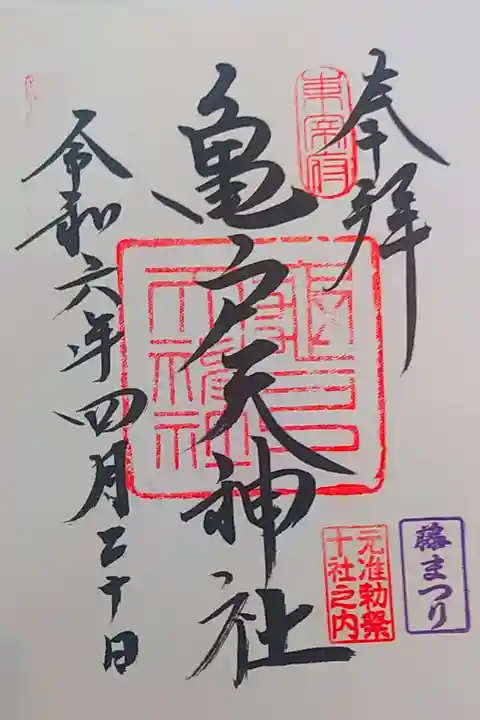 奉拝
東宰府
亀戸天神社
令和六年四月二十日
藤まつり
元准勅祭
十社之内